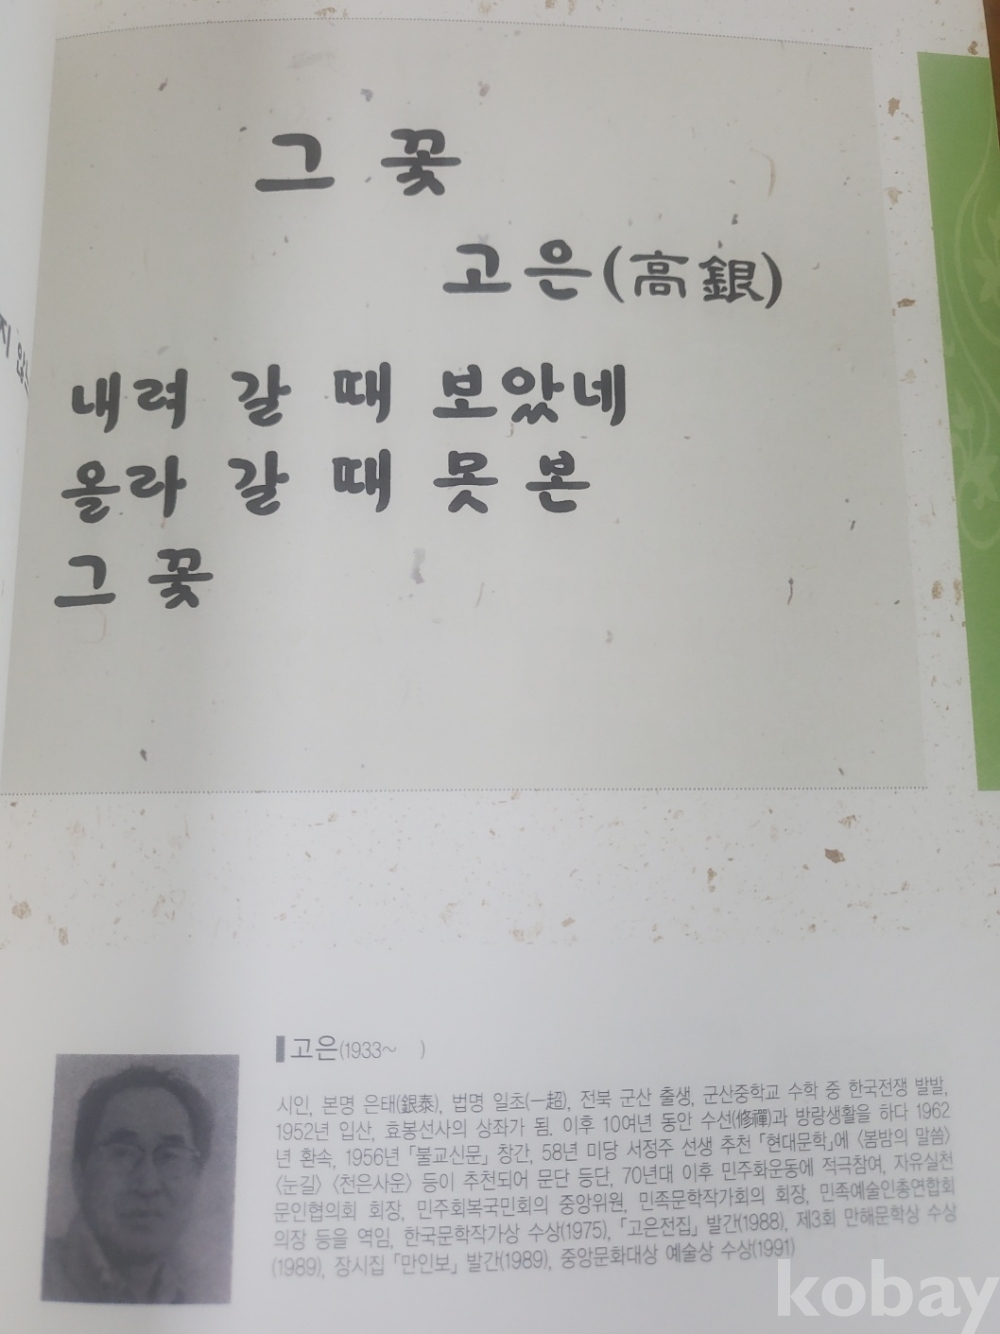 그 꽃
고은(高銀)
내려 갈 때 보았네
올라 갈 때 못 본
그 꽃
지 않는
고은(1933~ )
시인, 본명 은태(銀泰), 법명 일초(一超), 전북 군산 출생, 군산중학교 수학 중 한국전쟁 발발,
1952년 입산, 효봉선사의 상좌가 됨. 이후 10여년 동안 수선(修禪)과 방랑생활을 하다 1962
년 환속, 1956년 「불교신문」 창간, 58년 미당 서정주 선생 추천 「현대문학」에 〈봄밤의 말씀〉
〈눈길〉 〈천은사운〉 등이 추천되어 문단 등단, 70년대 이후 민주화운동에 적극참여, 자유실천
문인협의회 회장, 민주회복국민회의 중앙위원, 민족문학작가회의 회장, 민족예술인총연합회
의장 등을 역임, 한국문학작가상 수상(1975), 「고은전집」 발간(1988), 제3회 만해문학상 수상
(1989), 장시집 「만인보」 발간(1989), 중앙문화대상 예술상 수상(1991)
kobay